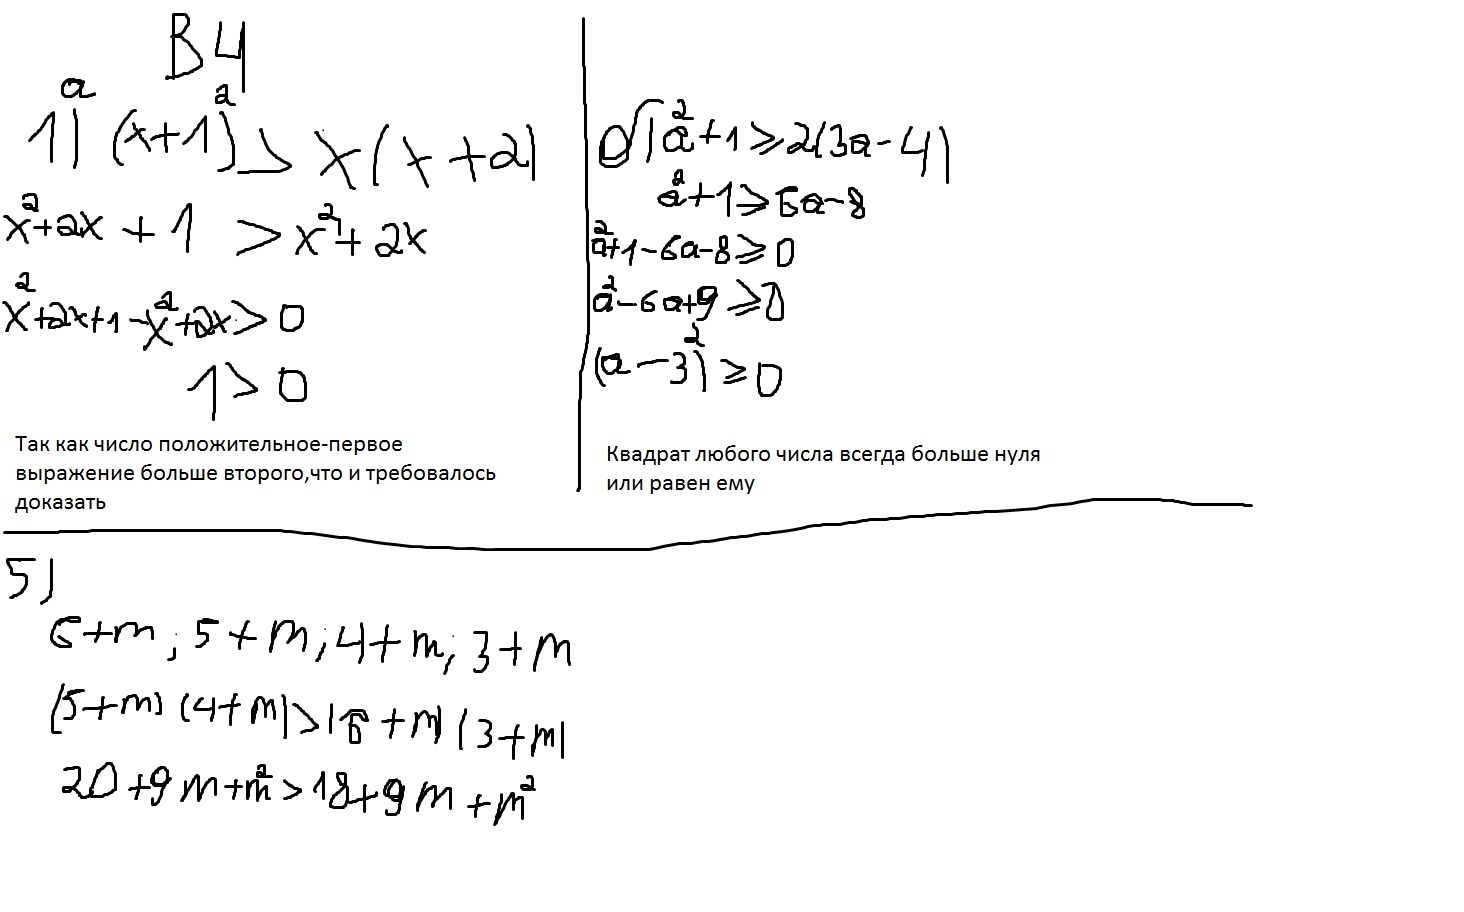 В4
1) а (x+1)² > x(x+2)
x²+2x+1 > x²+2x
x²+2x+1-x²+2x>0
1>0
Так как число положительное-первое
выражение больше второго,что и требовалось
доказать
б) a²+1≥2(3a-4)
a²+1≥6a-8
a²+1-6a-8≥0
a²-6a+9≥0
(a-3)²≥0
Квадрат любого числа всегда больше нуля
или равен ему
5)
6+m; 5+m; 4+m; 3+m
(5+m)(4+m)>(6+m)(3+m)
20+9m+m²>18+9m+m²